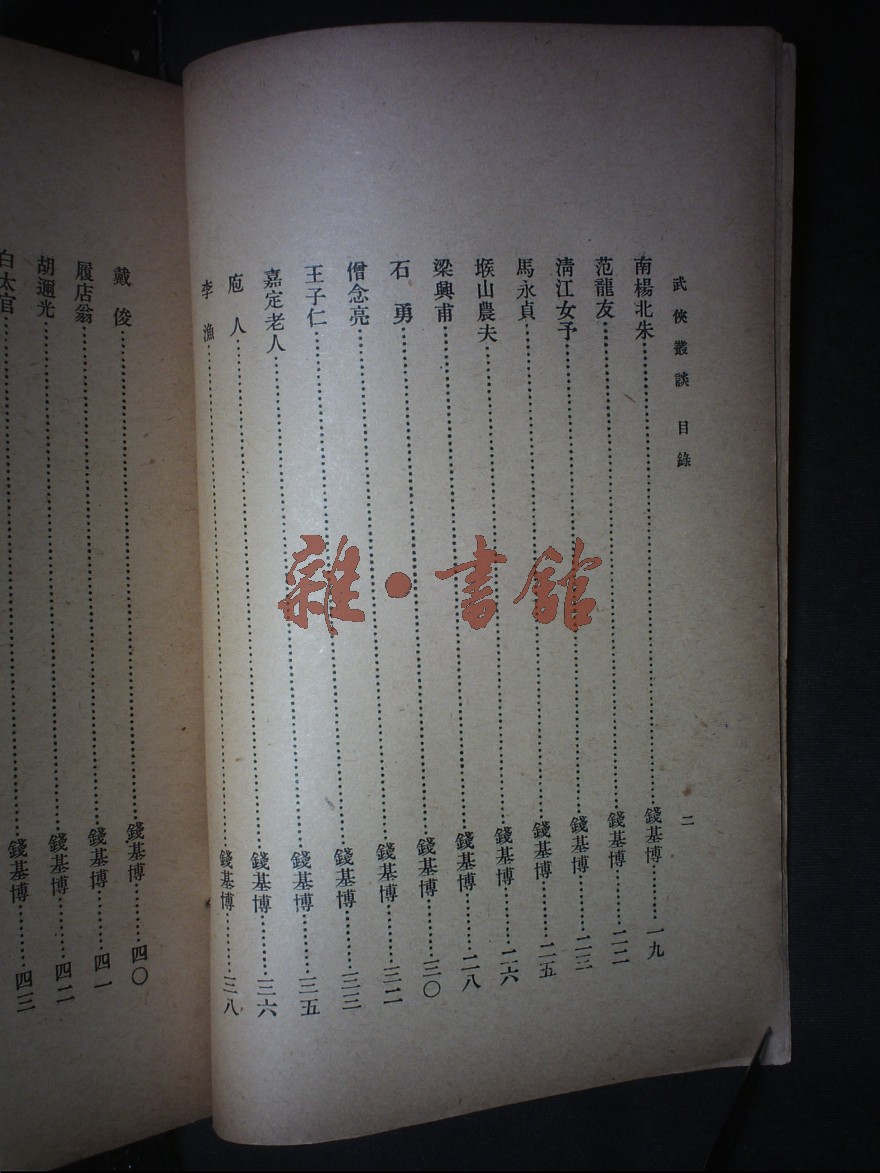 武俠叢談 目錄 二
南楊北朱……錢基博……一九
范龍友……錢基博……二二
清江女予……錢基博……二三
馬永貞……錢基博……二五
堠山農夫……錢基博……二六
梁興甫……錢基博……二八
石勇……錢基博……三〇
僧念亮……錢基博……三二
王子仁……錢基博……三三
嘉定老人……錢基博……三五
庖人……錢基博……三六
李漁……錢基博……三八
戴俊……錢基博……四〇
履店翁……錢基博……四一
胡邇光……錢基博……四二
白太官……錢基博……四三
雜·書館